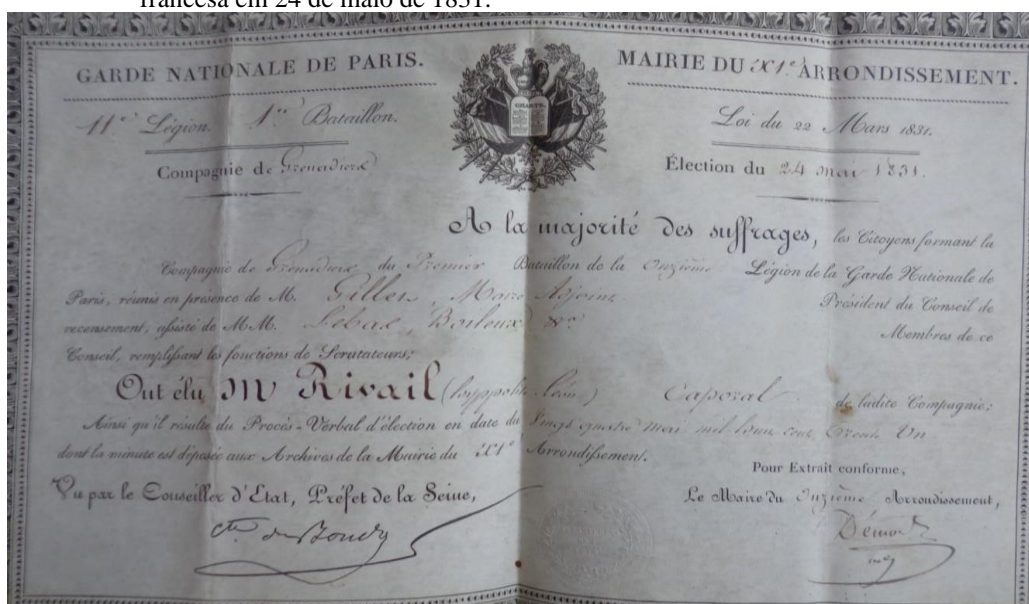 francesa em 24 de maio de 1831.
GARDE NATIONALE DE PARIS.
MAIRIE DU XI.e ARRONDISSEMENT.
11e Légion. 1er Bataillon.
Loi du 22 Mars 1831.
CHARTE.
Compagnie de Grenadiers
Élection du 24 mai 1831.
A la majorité des suffrages, les Citoyens formant la
Compagnie de Grenadiers du Premier Bataillon de la Onzième Légion de la Garde Nationale de
Paris, réunis en présence de M. Gillet, Maire Adjoint Président du Conseil de
recensement, assisté de M.M. Membres de ce
Conseil, remplissant les fonctions de Scrutateurs;
Ont élu M Rivail (hyppolite Léon) Caporal de ladite Compagnie;
Ainsi qu'il résulte du Procès-Verbal d'élection en date du Vingt quatre mai mil huit cent trente Un
dont la minute est déposée aux Archives de la Mairie du XIe Arrondissement.
Pour Extrait conforme,
Vu par le Conseiller d'Etat, Préfet de la Seine,
Le Maire du Onzième Arrondissement,
Cte de Bondy